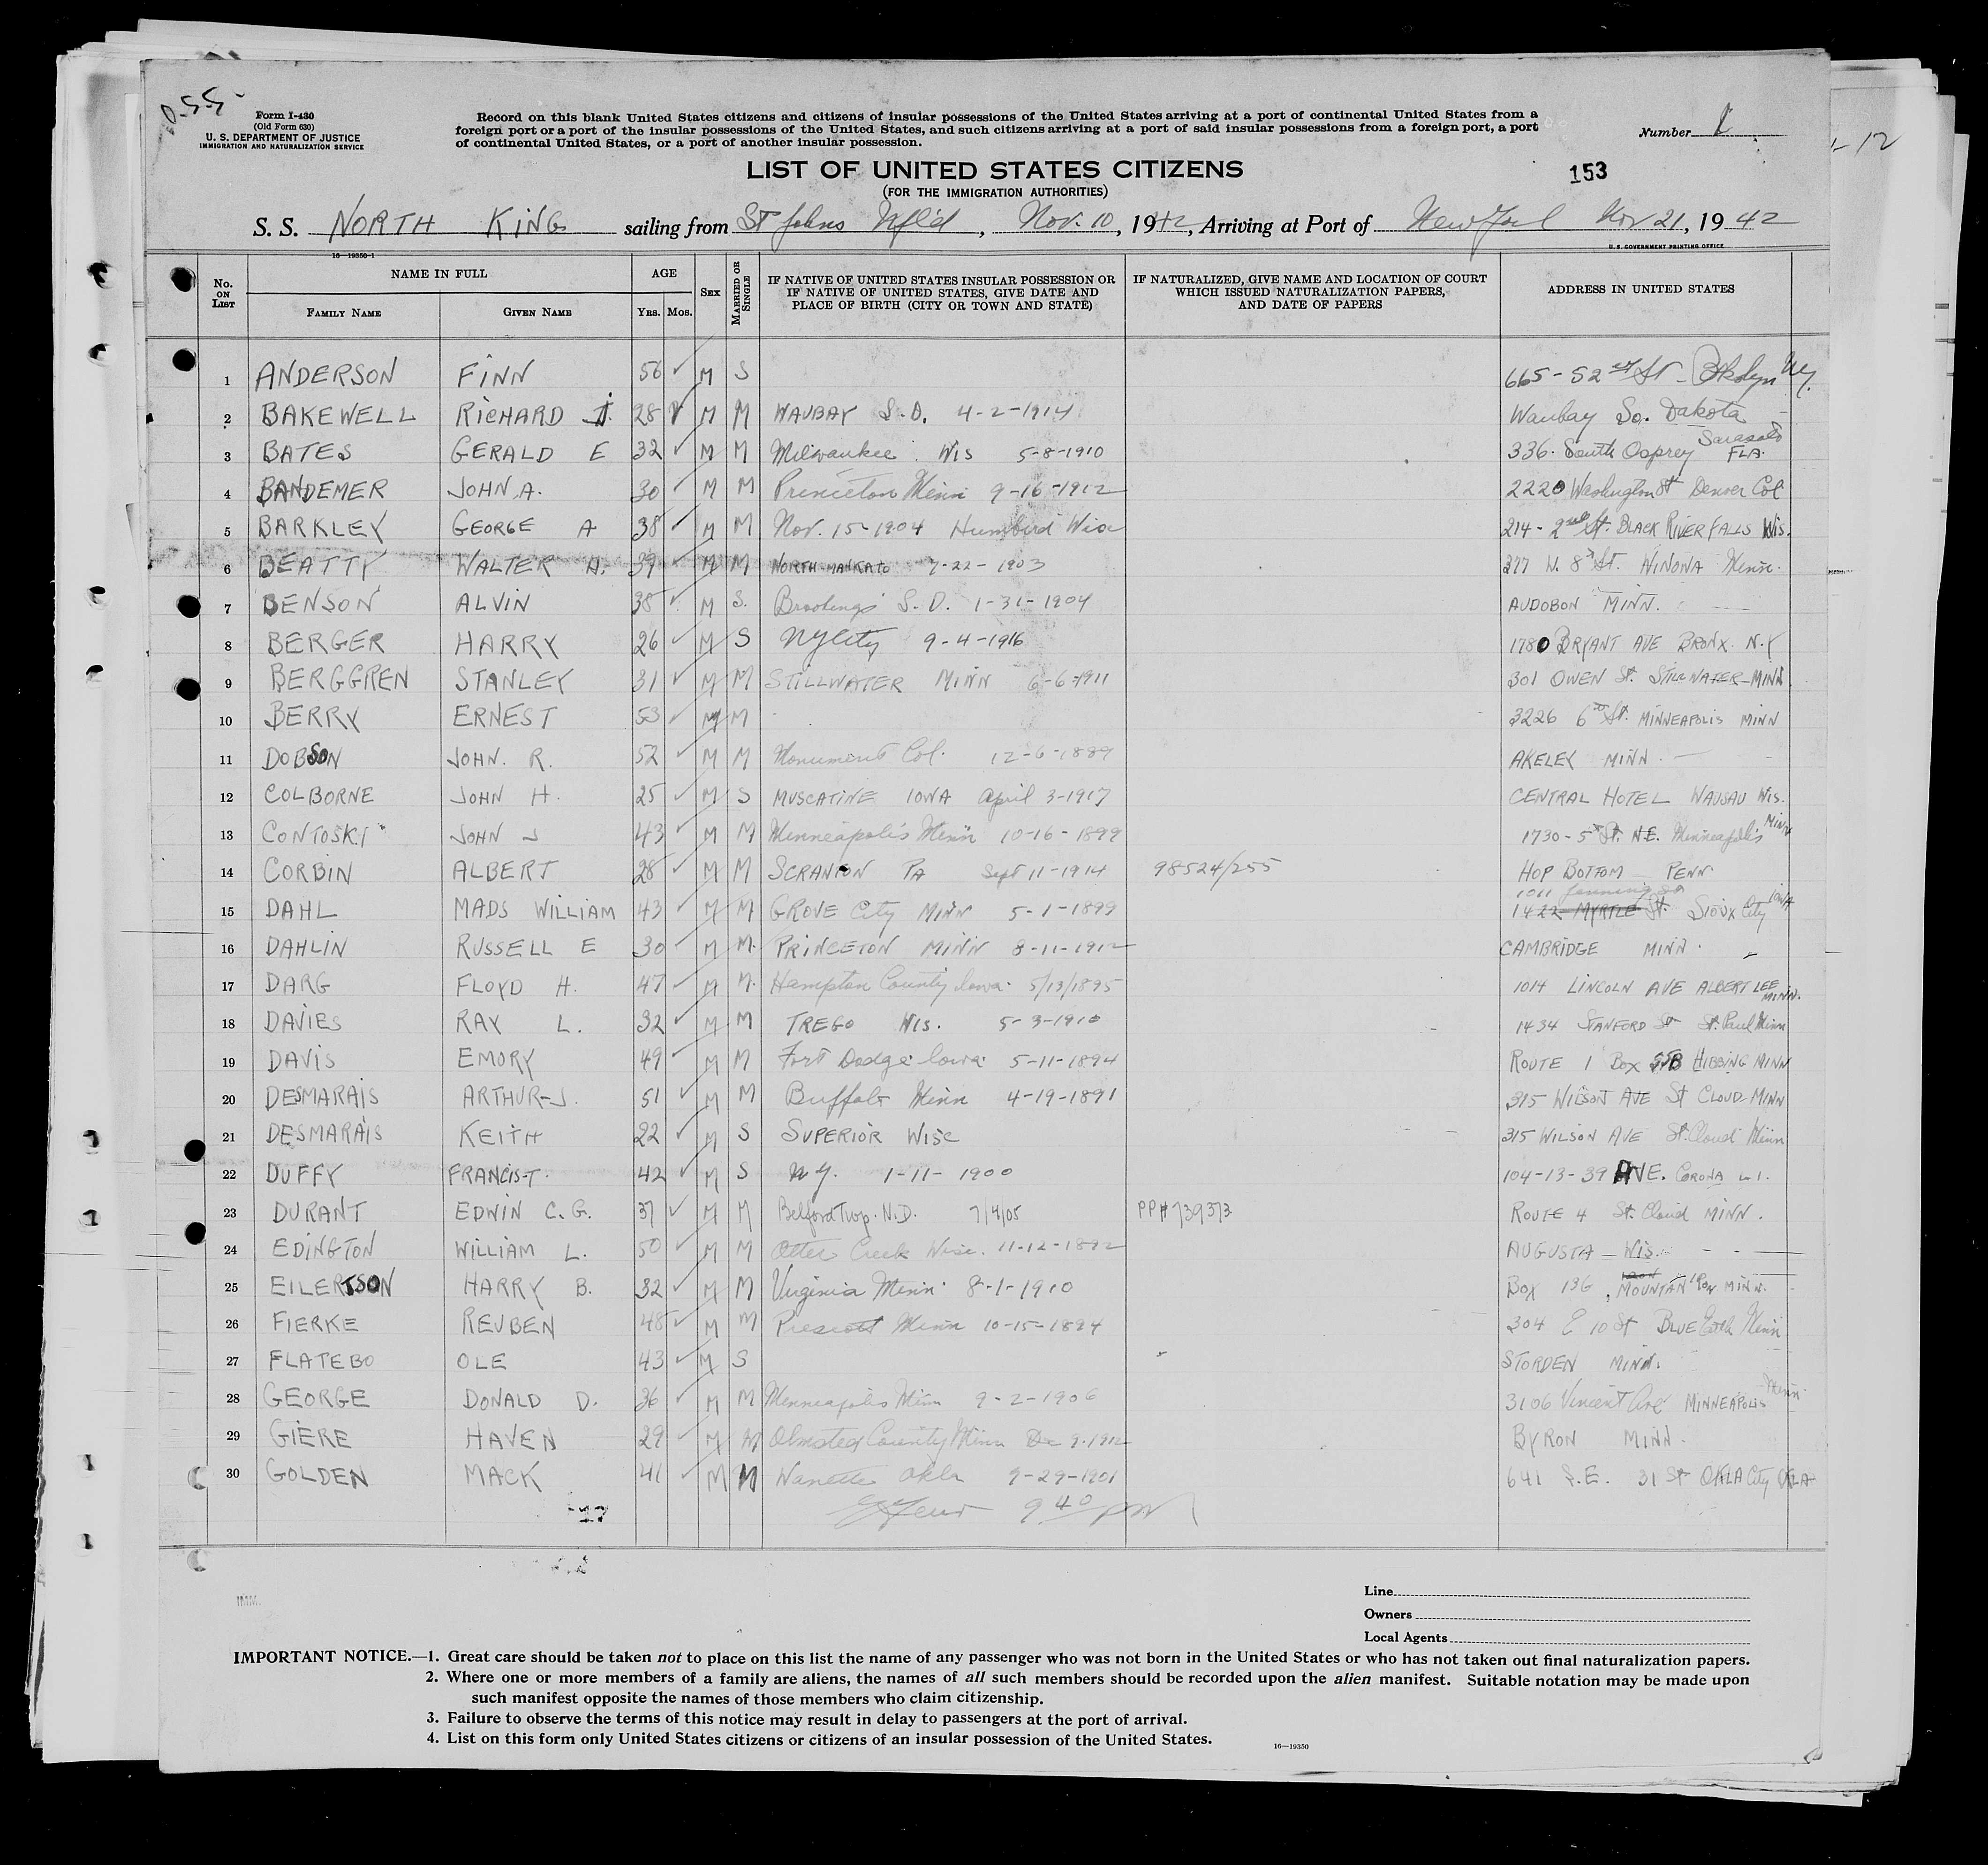 O.S.S.
Form I-430
(Old Form 630)
U. S. DEPARTMENT OF JUSTICE
IMMIGRATION AND NATURALIZATION SERVICE
Record on this blank United States citizens and citizens of insular possessions of the United States arriving at a port of continental United States from a
foreign port or a port of the insular possessions of the United States, and such citizens arriving at a port of said insular possessions from a foreign port, a port
of continental United States, or a port of another insular possession.
Number 1
- 12
LIST OF UNITED STATES CITIZENS
(FOR THE IMMIGRATION AUTHORITIES)
153
S. S. NORTH KING sailing from St Johns Nfld, Nov. 10, 1942, Arriving at Port of New York Nov 21, 1942
16—19350-1
U. S. GOVERNMENT PRINTING OFFICE
No. ON LIST NAME IN FULL FAMILY NAME GIVEN NAME AGE YRS. MOS. SEX MARRIED OR SINGLE IF NATIVE OF UNITED STATES INSULAR POSSESSION OR IF NATIVE OF UNITED STATES, GIVE DATE AND PLACE OF BIRTH (CITY OR TOWN AND STATE) IF NATURALIZED, GIVE NAME AND LOCATION OF COURT WHICH ISSUED NATURALIZATION PAPERS, AND DATE OF PAPERS ADDRESS IN UNITED STATES
1 ANDERSON FINN 56 ✓ M S 665 - 52nd St - Brooklyn NY.
2 BAKEWELL RICHARD J. 28 ✓ M M WAUBAY S.D. 4-2-1914 Waubay So. Dakota
3 BATES GERALD E 32 ✓ M M Milwaukee Wis 5-8-1910 336 South Osprey Sarasota FLA.
4 BANDEMER JOHN A. 30 ✓ M M Princeton Minn 9-16-1912 2220 Washington St Denver Col
5 BARKLEY GEORGE A 38 ✓ M M Nov. 15-1904 Humbird Wisc 214 - 2nd St. BLACK RIVER FALLS WIS.
6 BEATTY WALTER H. 39 ✓ M M NORTH MANKATO 7-22-1903 277 W. 8th St. WINONA Minn.
7 BENSON ALVIN 38 ✓ M S. Brookings S.D. 1-31-1904 AUDOBON MINN.
8 BERGER HARRY 26 ✓ M S NYCity 9-4-1916 1780 BRYANT AVE BRONX. N.Y
9 BERGGREN STANLEY 31 ✓ M M STILLWATER MINN 6-6-1911 301 OWEN St. STILLWATER-MINN.
10 BERRY ERNEST 53 ✓ M M 3226 6th St. MINNEAPOLIS MINN
11 DOBSON JOHN. R. 52 ✓ M M Monument Col. 12-6-1889 AKELEY MINN.
12 COLBORNE JOHN H. 25 ✓ M S MUSCATINE IOWA April 3-1917 CENTRAL HOTEL WAUSAU WIS.
13 CONTOSKI JOHN J 43 ✓ M M Minneapolis Minn 10-16-1899 1730 - 5th St. N.E. Minneapolis MINN
14 CORBIN ALBERT 28 ✓ M M SCRANTON PA Sept 11-1914 98524/255 HOP BOTTOM PENN
15 DAHL MADS WILLIAM 43 ✓ M M GROVE City MINN 5-1-1899 1011 Jennings St 1422 MYRTLE St. SIOUX City IOWA
16 DAHLIN RUSSELL E 30 ✓ M M. PRINCETON MINN 8-11-1912 CAMBRIDGE MINN.
17 DARG FLOYD H. 47 ✓ M M. Hampton County Iowa. 5/13/1895 1014 LINCOLN AVE ALBERT LEE MINN.
18 DAVIES RAY L. 32 ✓ M M TREGO WIS. 5-3-1910 1434 STANFORD St St. Paul Minn
19 DAVIS EMORY 49 ✓ M M Fort Dodge Iowa 5-11-1894 ROUTE 1 BOX HIBBING MINN
20 DESMARAIS ARTHUR-J. 51 ✓ M M Buffalo Minn 4-19-1891 315 WILSON AVE St CLOUD-MINN
21 DESMARAIS KEITH 22 ✓ M S SUPERIOR WISC 315 WILSON AVE St. Cloud Minn
22 DUFFY FRANCIS-T. 42 ✓ M S N.Y. 1-11-1900 104-13-39 AVE. CORONA L.I.
23 DURANT EDWIN C.G. 37 ✓ M M Belford Twp. N.D. 7/4/05 PP# 739373 ROUTE 4 St. Cloud MINN.
24 EDINGTON WILLIAM L. 50 ✓ M M Otter Creek Wisc. 11-12-1892 AUGUSTA - WIS.
25 EILERTSON HARRY B. 32 ✓ M M Virginia Minn 8-1-1910 BOX 136, MOUNTAN IRON MINN.
26 FIERKE REUBEN 48 ✓ M M Prescott Minn 10-15-1894 304 E 10 St BLUE Earth Minn
27 FLATEBO OLE 43 ✓ M S STORDEN MINN.
28 GEORGE DONALD D. 36 ✓ M M Minneapolis Minn 9-2-1906 3106 Vincent Ave MINNEAPOLIS Minn
29 GIERE HAVEN 29 ✓ M M Olmsted County Minn De 9-1912 BYRON MINN.
30 GOLDEN MACK 41 ✓ M M Wanette Okla 9-29-1901 641 S.E. 31 St OKLA City OKLA
9 40 PM
IMM.
Line
Owners
Local Agents
IMPORTANT NOTICE.—1. Great care should be taken not to place on this list the name of any passenger who was not born in the United States or who has not taken out final naturalization papers.
2. Where one or more members of a family are aliens, the names of all such members should be recorded upon the alien manifest. Suitable notation may be made upon
such manifest opposite the names of those members who claim citizenship.
3. Failure to observe the terms of this notice may result in delay to passengers at the port of arrival.
4. List on this form only United States citizens or citizens of an insular possession of the United States.
16—19350